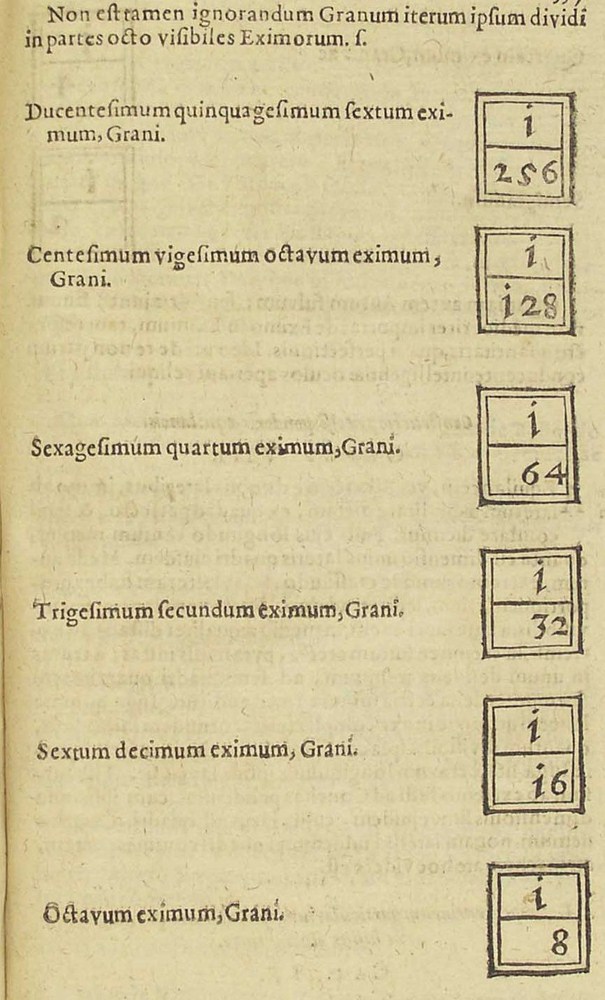 Non eſt tamen ignorandum Granum iterum ipſum dividi
in partes octo viſibiles Eximorum. ſ.
Ducenteſimum quinquageſimum ſextum exi-
mum, Grani.
i
256
Centeſimum vigeſimum octavum eximum,
Grani.
i
i28
Sexageſimum quartum eximum, Grani.
i
64
Trigeſimum ſecundum eximum, Grani.
i
32
Sextum decimum eximum, Grani.
i
i6
Octavum eximum, Grani.
i
8